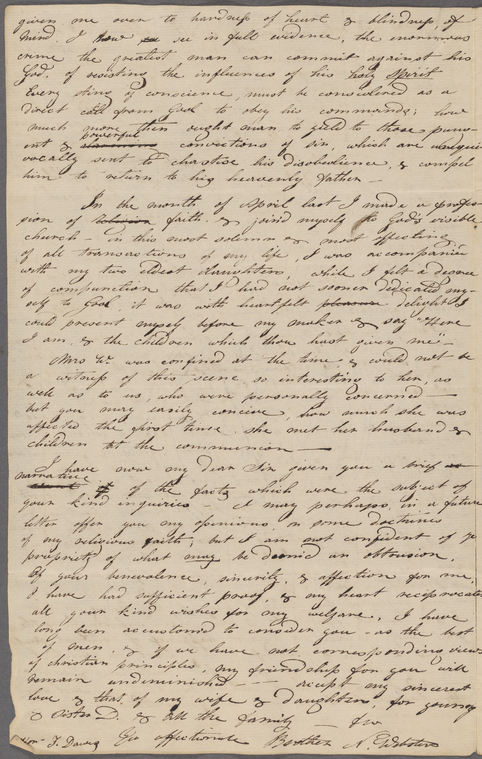 given me over to hardness of heart & blindness of
mind. I now see in full evidence, the enormous
crime the greatest man can commit against his
God, of resisting the influences of his holy Spirit
Every of conscience, must be considered as a
direct call from God to obey his commands; how
much more then ought man to yield to those
& powerful convictions of sin, which are
vocally sent to chastise his disobedience, & compel
him to return to his heavenly father —
In the month of April last I made a profes-
sion of faith, & joind myself to God's visible
church — in this most solemn & most affecting
of all transactions of my life, I was accompanied
with my two eldest daughters, while I felt a degree
of compunction that I had not sooner dedicated my-
self to God, it was with heartfelt delight I
could present myself before my maker & say "Here
I am, & the children which thou hast given me" —
Mrs W. was confined at the time & could not be
a witness of this scene, so interesting to her, as
well as to us, who were personally concerned —
but you may easily conceive, how much she was
affected the first time she met her husband &
children at the communion —
I have now my dear Sir given you a brief
narrative of the facts which were the subject of
your kind inquiries — it may perhaps, in a future
letter offer you my opinions on some doctrines
of my religious faith; but I am not confident of ye
propriety of what may be deemed an obtrusion.
Of your benevolence, sincerity, & affection for me,
I have had sufficient proof, & my heart reciprocates
all your kind wishes for my welfare. I have
long been accustomed to consider you as the best
of men, & if we have not corresponding views
of christian principles, my friendship for you will
remain undiminished — accept my sincerest
love & that of my wife & daughters, for yourself
& Sister D. & all the family —
Hon. T. Dawes Yr affectionate Brother N. Webster